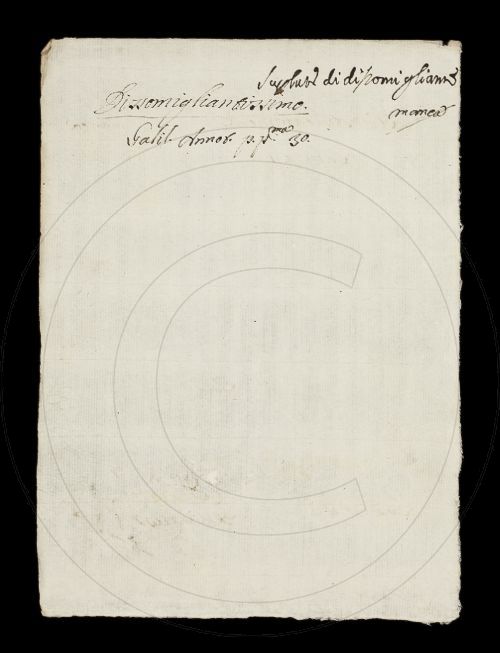 Superlat. di dissomigliante
manca
Dissomigliantissimo.
Galil. Annot. p. pma 30.